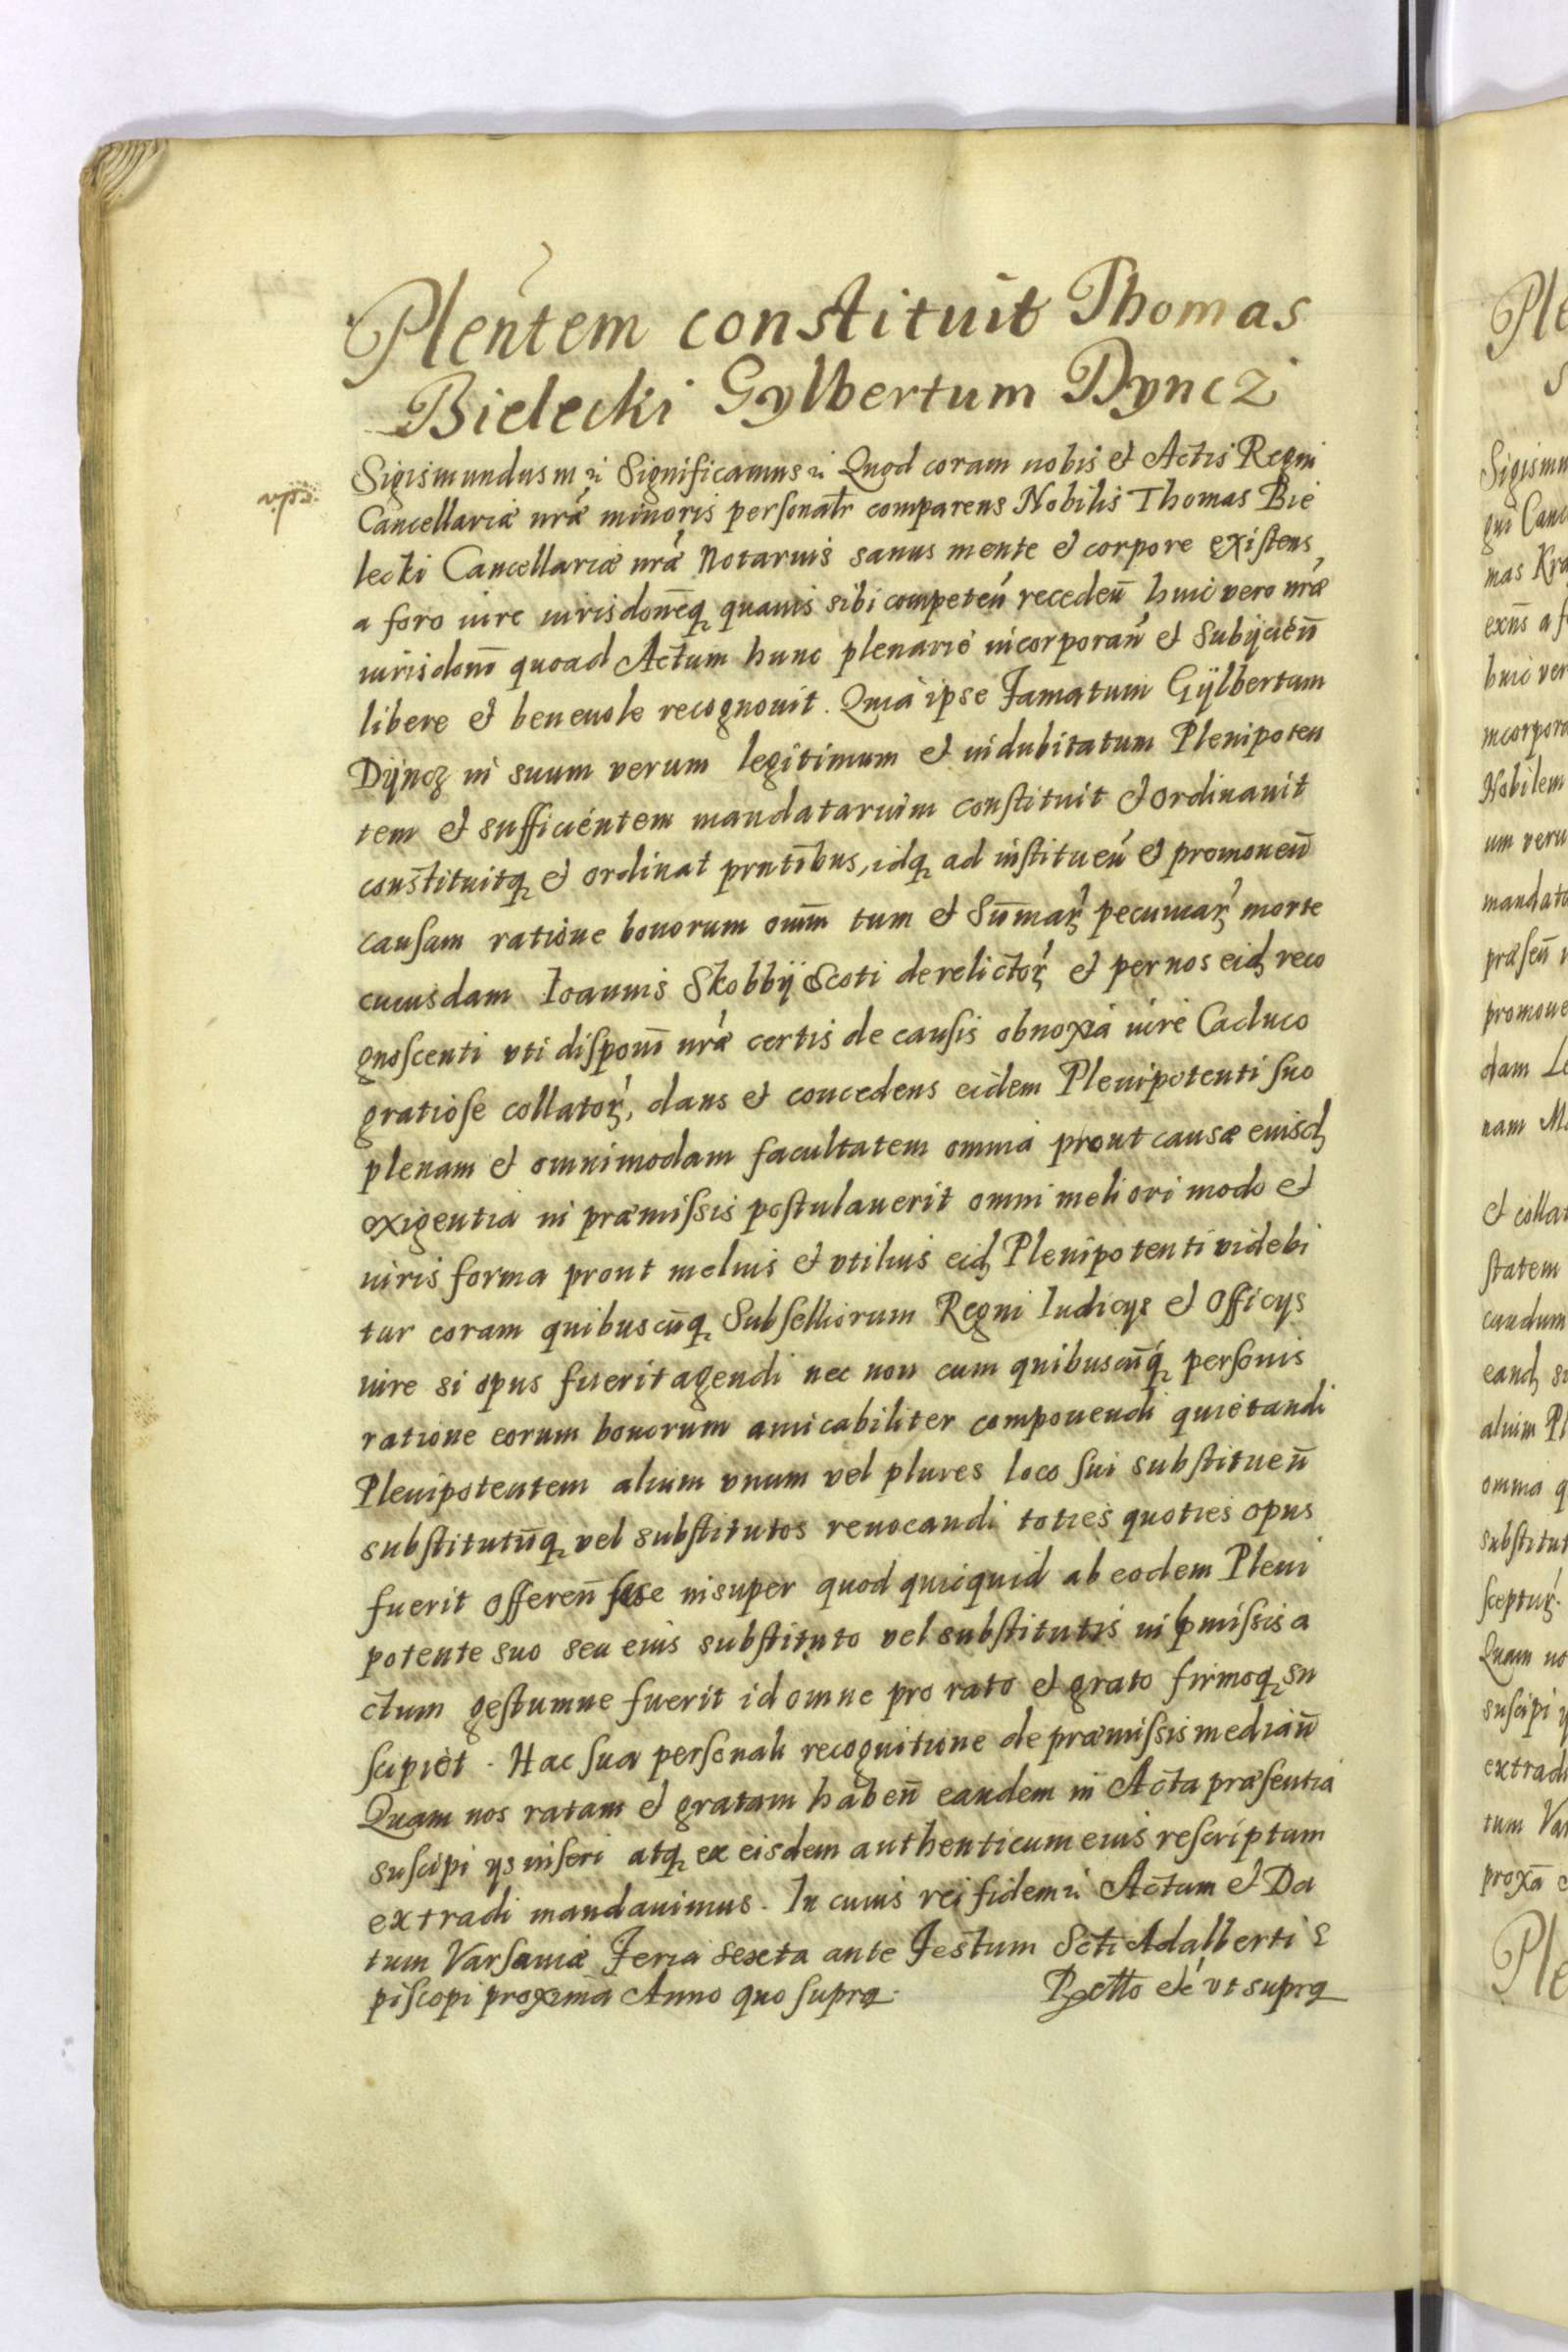 Plentem constituit Thomas
Bielecki Gylbertum Dyncz
Sigismundus m &c Significamus &c Quod coram nobis et Actis Regni
Cancellariæ nr̃æ minoris personalr̃ comparens Nobilis Thomas Bie
lecki Cancellariæ nr̃æ Notarius sanus mente et corpore existens
a foro iure iurisdone͞q quauis sibi competeñ recedeñ huic vero nr̃æ
iurisdoni quoad Actum hunc plenarie incorporañ et subijcieñ
libere et beneuole recognouit. Quia ipse Famatum Gÿlbertum
Dÿncz in suum verum legitimum et indubitatum Plenipoten
tem et sufficientem mandatarium constituit et ordinauit
constituitq et ordinat prñtibus, idq ad institueñ et promoueñ
causam ratione bonorum omñi tum et Sum̃ar pecuniar morte
cuiusdam Ioannis Skobbÿ Scoti derelictor et per nos eid reco
gnoscenti vti disponi nr̃æ certis de causis obnoxia iure Caduco
gratiose collator, dans et concedens eidem Plenipotenti suo
plenam et omnimodam facultatem omnia prout causæ eiusd
exigentia in præmissis postulauerit omni meliori modo et
iuris forma prout melius et vtilius eid Plenipotenti videbi
tur coram quibuscũq Subselliorum Regni Iudicys et Officys
iure si opus fuerit agendi nec non cum quibuscũq personis
ratione eorum bonorum amicabiliter componendi quietandi
Plenipotentem alium vnum vel plures loco sui substitueñ
substitutũq vel substitutos reuocandi toties quoties opus
fuerit offereñ sese insuper quod quicquid ab eodem Pleni
potente suo seu eius substituto vel substitutis in p̱missis a
ctum gestumue fuerit id omne pro rato et grato firmoq su
scipiet. Hac sua personali recognitione de præmissis mediañ
Quam nos ratam et gratam habeñ eandem in Acta præsentia
suscipi ys inseri atq ex eisdem authenticum eius rescriptum
extradi mandauimus. In cuius rei fidem &c Actum et Da
tum Varsauiæ Feria sexta ante Festum Scti Adalberti E
piscopi proxima Anno quo supra. Rela͞tio etc vt supra